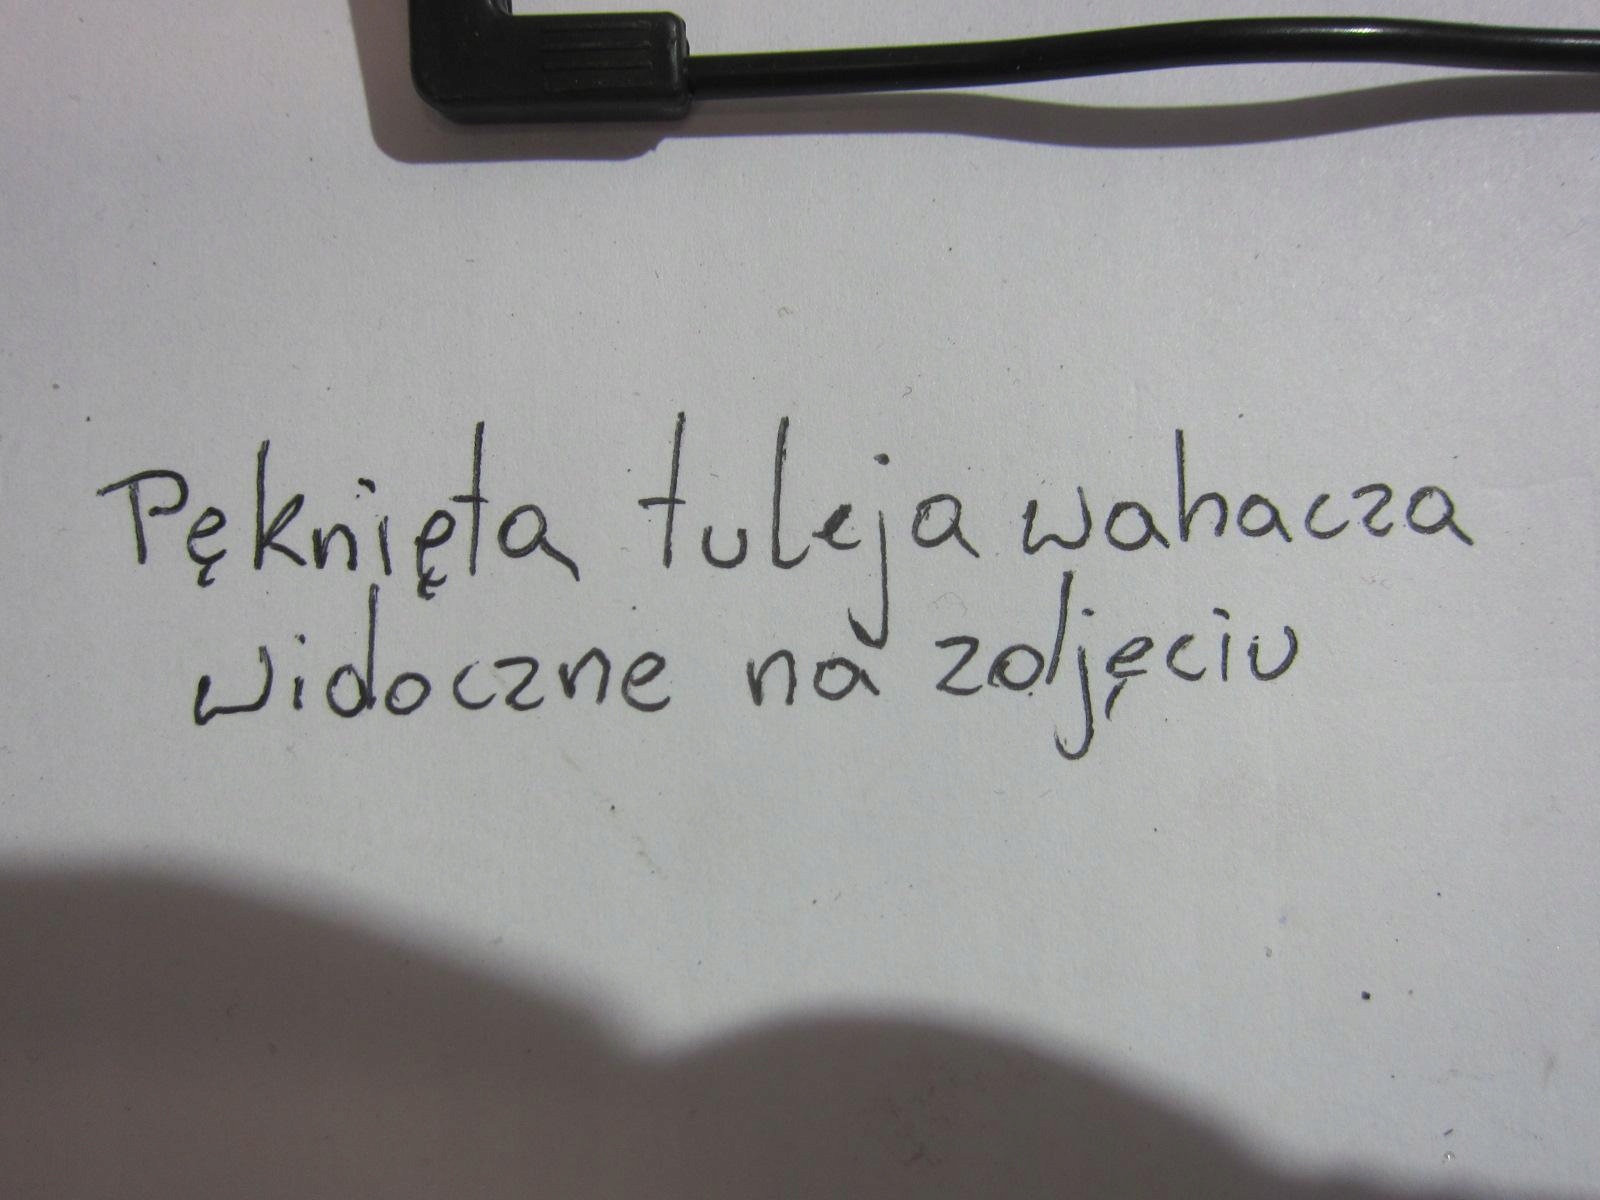 Pęknięta tuleja wahacza
widoczne na zdjęciu